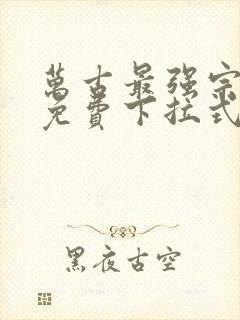 萬古最强宗
免費下拉式
黑夜古空